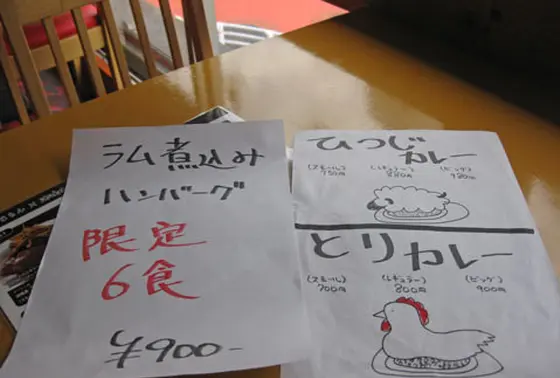 ラム煮込み
ハンバーグ
限定
6食
¥900-
ひつじ
カレー
(スモール) (レギュラー) (ビッグ)
750円 880円 980円
とりカレー
(スモール) (レギュラー) (ビッグ)
700円 800円 900円